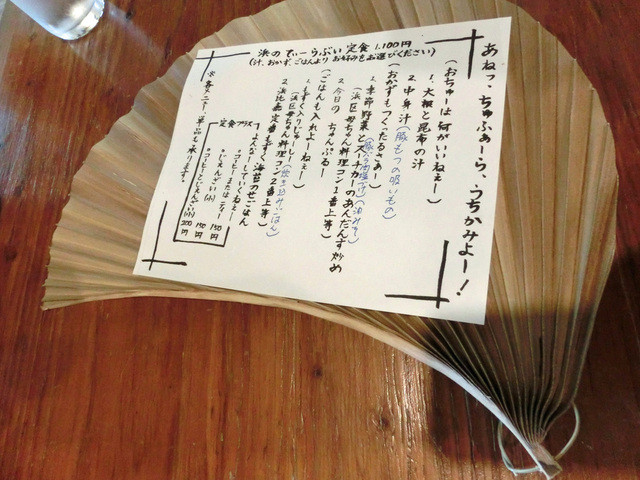 あねっ、ちゅふぁーら、うちかみよー!
浜のてぃーらぶい定食 1,100円
(汁、おかず、ごはんより お好みをお選びください)
(おちゅーは何がいいねぇー)
1、大根と昆布の汁
2、中身汁(豚もつの吸いもの)
(おかずもつくったるさぁ)
1、季節野菜とスーチカーのあんだんす炒め
(浜区母ちゃん料理コン1番上等)
2、今日の ちゃんぷるー
(ごはんも入れよーねぇー)
1、もずく入りじゅーしー(炊き込みごはん)
(浜区母ちゃん料理コン2番上等)
2、浜比嘉定番もずく海苔のせごはん
よんなーしていくねぇー
定食プラス
・コーヒーまたはティー 150円
・じぇんざい(小) 150円
・コーヒーとじぇんざい(小) 200円
※各メニュー単品も承ります。